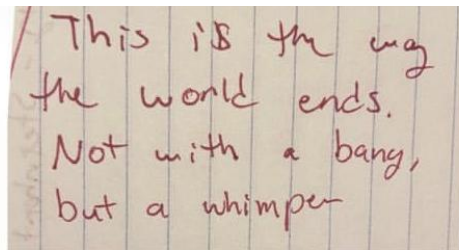 This is the way
the world ends.
Not with a bang,
but a whimper